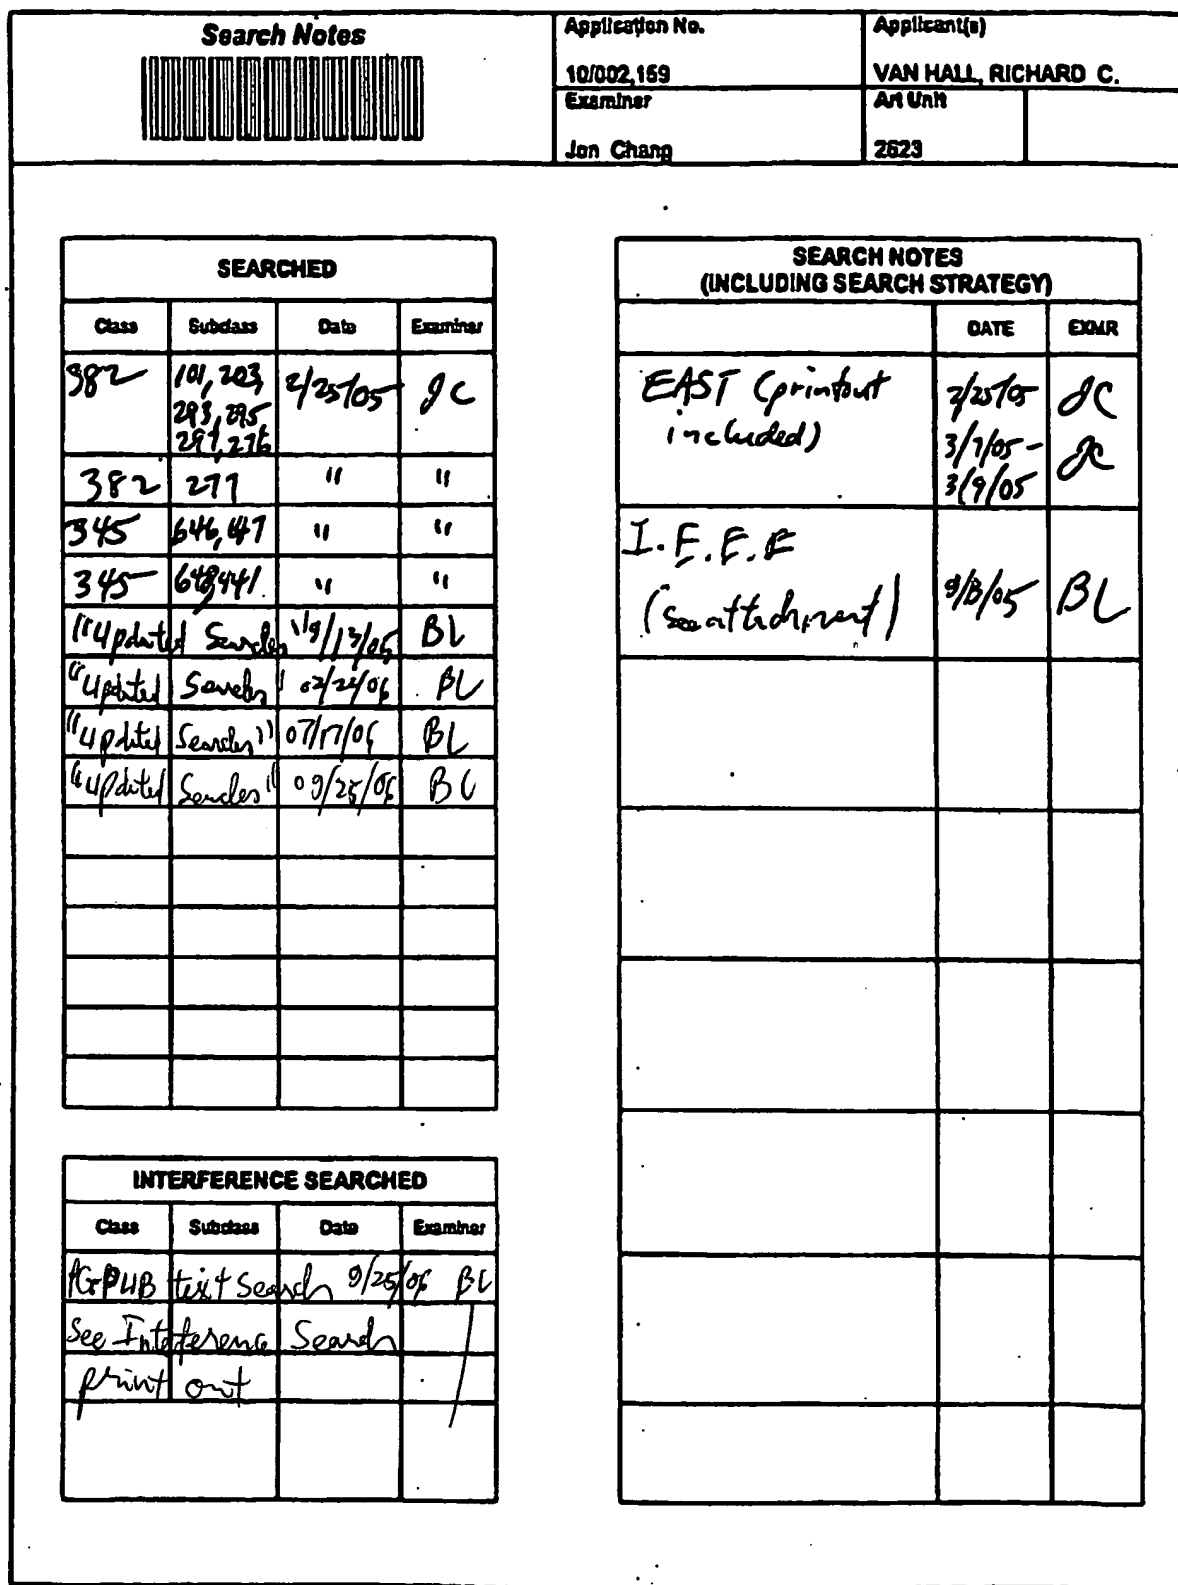 Search Notes
Application No.
Applicant(s)
10/002,159
VAN HALL, RICHARD C.
Examiner
Art Unit
Jon Chang
2623
SEARCHED
Class Subclass Date Examiner
382 101, 203, 2/25/05 JC
293, 295
297, 276
382 277 " "
345 646, 647 " "
345 648, 441 " "
"Updated Searches" 9/13/05 BL
"Updated Searches" 02/22/06 BL
"Updated Searches" 07/17/06 BL
"Updated Searches" 09/25/06 BL
INTERFERENCE SEARCHED
Class Subclass Date Examiner
PGPUB text Search 9/25/06 BL
See Interference Search
print out
SEARCH NOTES
(INCLUDING SEARCH STRATEGY)
DATE EXMR
EAST (printout 2/25/05 JC
included) 3/7/05 - JC
3/9/05
I.E.E.E
(see attachment) 9/13/05 BL